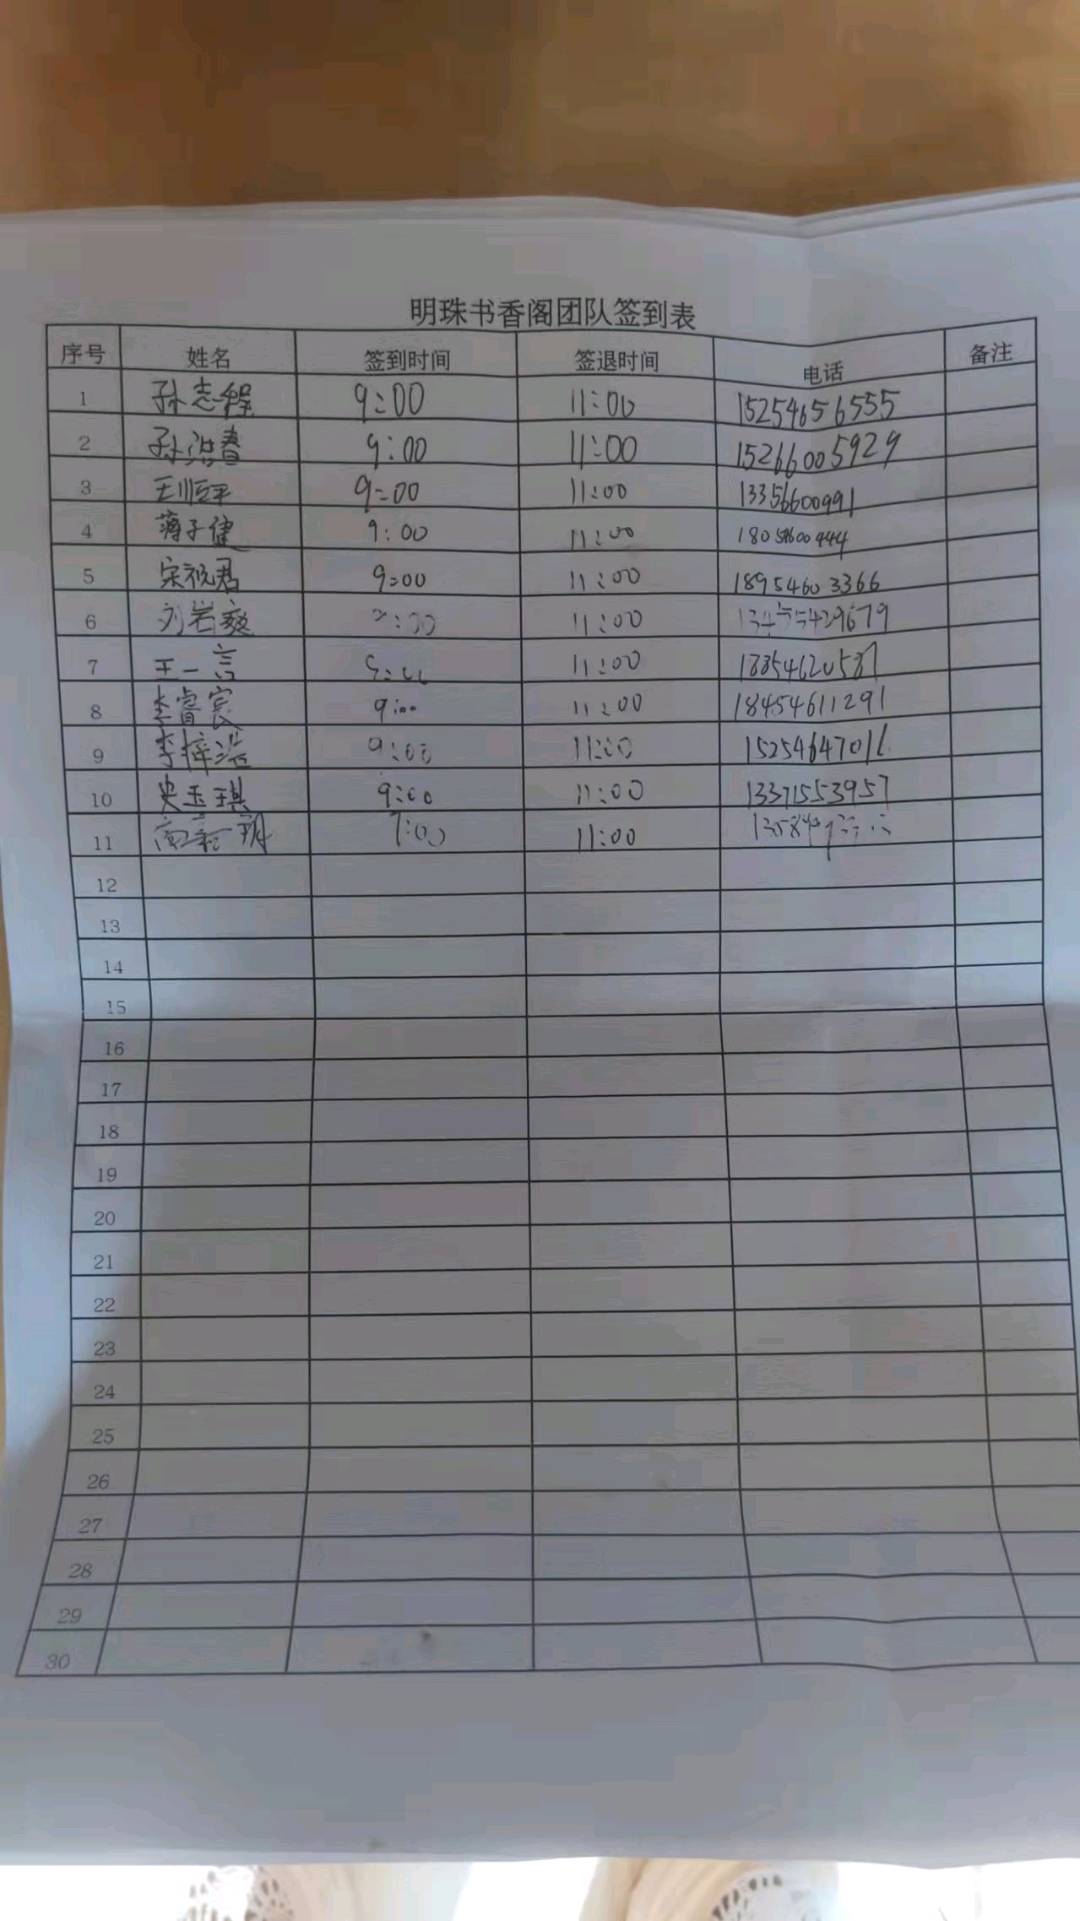 明珠书香阁团队签到表
序号 姓名 签到时间 签退时间 电话 备注
1 孙志程 9:00 11:00 15254656555
2 孙浩春 9:00 11:00 15266005929
3 王顺平 9:00 11:00 13356600991
4 蒋子健 9:00 11:00
5 宋祝君 9:00 11:00 18954603366
6 刘岩 11:00
7 王一言 11:00
8 李睿宸 9:00 11:00 18454611291
9 李梓浩 9:00 11:00
10 史玉琪 9:00 11:00 13371553957
11 11:00
12
13
14
15
16
17
18
19
20
21
22
23
24
25
26
27
28
29
30